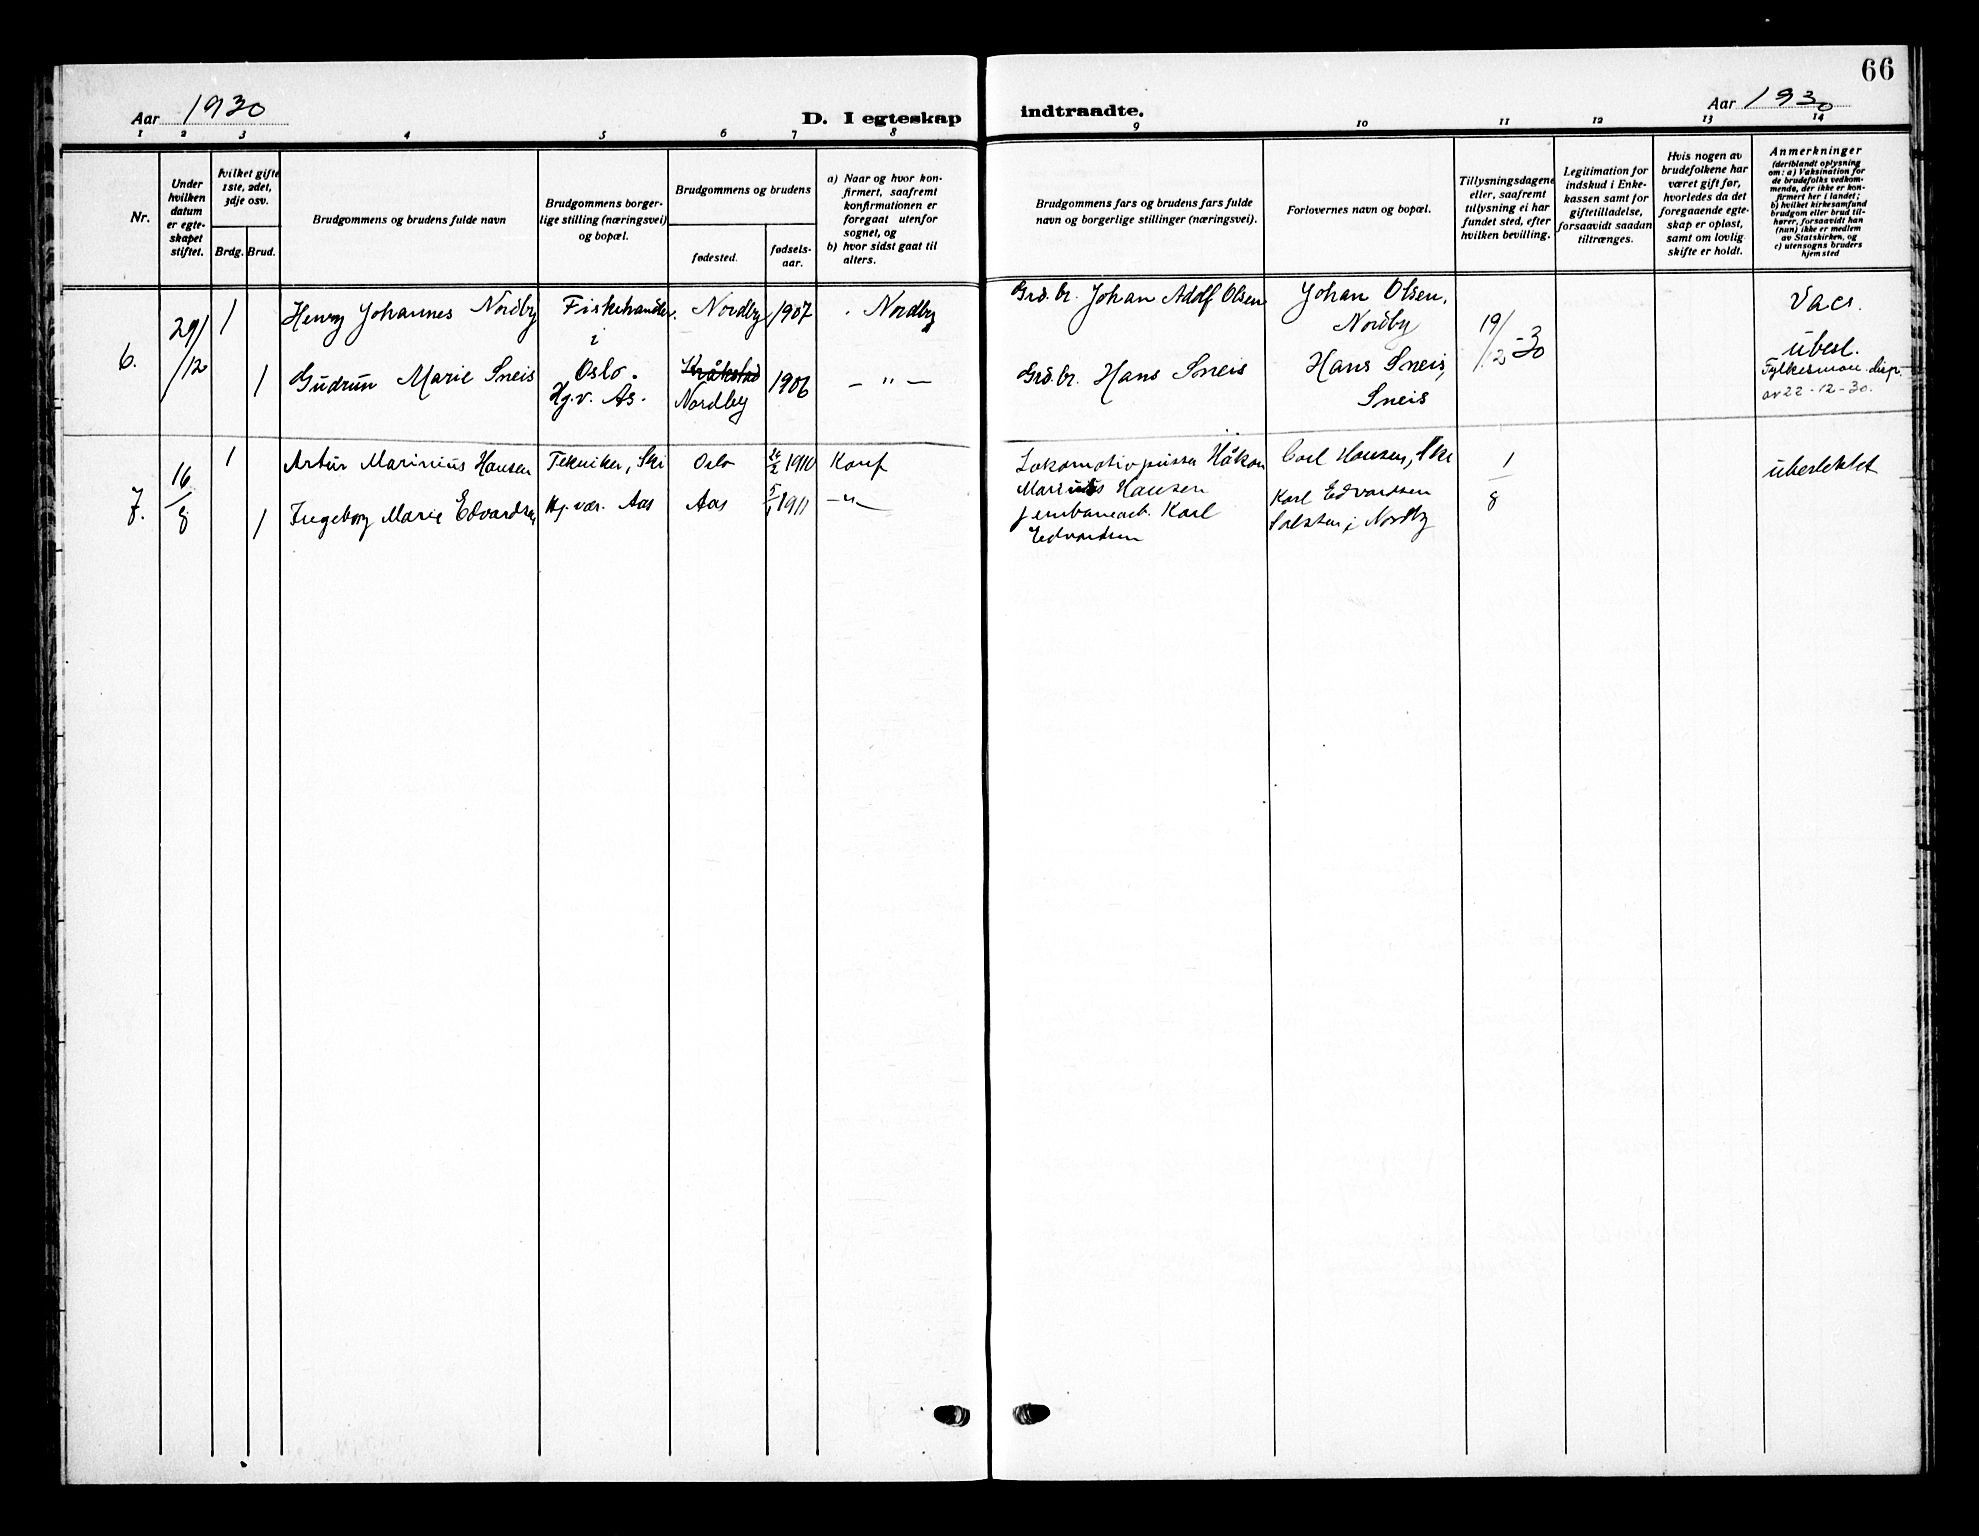 66
Aar 1930
D. I egteskap
indtraadte.
Aar 1930
1 2 3 4 5 6 7 8 9 10 11 12 13 14
Nr.
Under
hvilken
datum
er egte-
skapet
stiftet.
hvilket gifte
1ste, 2det,
3dje osv.
Brdg. Brud.
Brudgommens og brudens fulde navn
Brudgommens borger-
lige stilling (næringsvei)
og bopæl.
Brudgommens og brudens
fødested.
fødsels-
aar.
a) Naar og hvor kon-
firmert, saafremt
konfirmationen er
foregaat utenfor
sognet, og
b) hvor sidst gaat til
alters.
Brudgommens fars og brudens fars fulde
navn og borgerlige stillinger (næringsvei).
Forlovernes navn og bopæl.
Tillysningsdagene
eller, saafremt
tillysning ei har
fundet sted, efter
hvilken bevilling.
Legitimation for
indskud i Enke-
kassen samt for
giftetilladelse,
forsaavidt saadan
tiltrænges.
Hvis nogen av
brudefolkene har
været gift før,
hvorledes da det
foregaaende egte-
skap er opløst,
samt om lovlig
skifte er holdt.
Anmerkninger
(deriblandt oplysning
om: a) Vaksination for
de brudefolks vedkom-
mende, der ikke er kon-
firmert her i landet;
b) hvilket kirkesamfund
brudgom eller brud til-
hører, forsaavidt han
(hun) ikke er medlem
av Statskirken, og
c) utensogns bruders
hjemsted
6.
29/
/12
1
Henry Johannes Nordby
Fiskehandler
i
Oslo.
Nordby
1907
Nordby
Grd.br. Johan Adolf Olsen
Johan Olsen,
Nordby
19/
/12-30
Vacs.
ubesl.
Fylkesman. disp.
av 22-12-30.
1
Gudrun Marie Sneis
Hj.v. Ås.
Kråkstad
Nordby
1906
— " —
Grd.br. Hans Sneis
Hans Sneis,
Sneis
7.
16
8
1
Artur Marinius Hansen
Tekniker, Ski
Oslo
1910
Konf
Lokomotivpusser Håkon
Marius Hansen
Carl Hansen, Ski
1
8
ubeslektet
1
Ingeborg Marie Edvardsen
Hj. vær. Aas
Aas
5/1 1911
— " —
jernbanearb. Karl
Edvardsen
Karl Edvardsen
Nordby